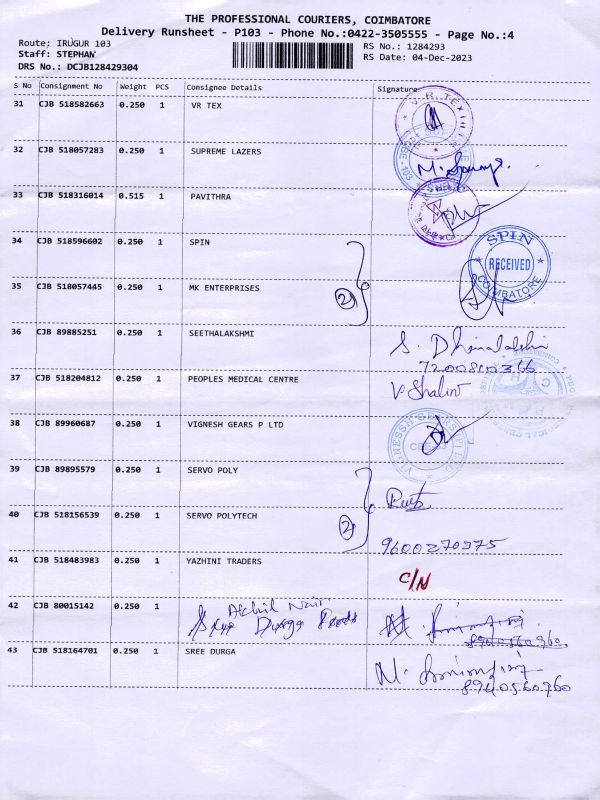 THE PROFESSIONAL COURIERS, COIMBATORE
Delivery Runsheet - P103 - Phone No.:0422-3505555 - Page No.:4
Route; IRUGUR 103
Staff: STEPHAN
DRS No.: DCJB128429304
RS No.: 1284293
RS Date: 04-Dec-2023
S No Consignment No Weight PCS Consignee Details Signature
31 CJB 518582663 0.250 1 VR TEX
32 CJB 518057283 0.250 1 SUPREME LAZERS
33 CJB 518316014 0.515 1 PAVITHRA
34 CJB 518596602 0.250 1 SPIN
SPIN
RECEIVED
COIMBATORE
35 CJB 518057445 0.250 1 MK ENTERPRISES
2
36 CJB 89885251 0.250 1 SEETHALAKSHMI
37 CJB 518204812 0.250 1 PEOPLES MEDICAL CENTRE
V. Shalini
38 CJB 89960687 0.250 1 VIGNESH GEARS P LTD
39 CJB 89895579 0.250 1 SERVO POLY
40 CJB 518156539 0.250 1 SERVO POLYTECH
2
9600270375
41 CJB 518483983 0.250 1 YAZHINI TRADERS
C/N
42 CJB 80015142 0.250 1
43 CJB 518164701 0.250 1 SREE DURGA
8940560760